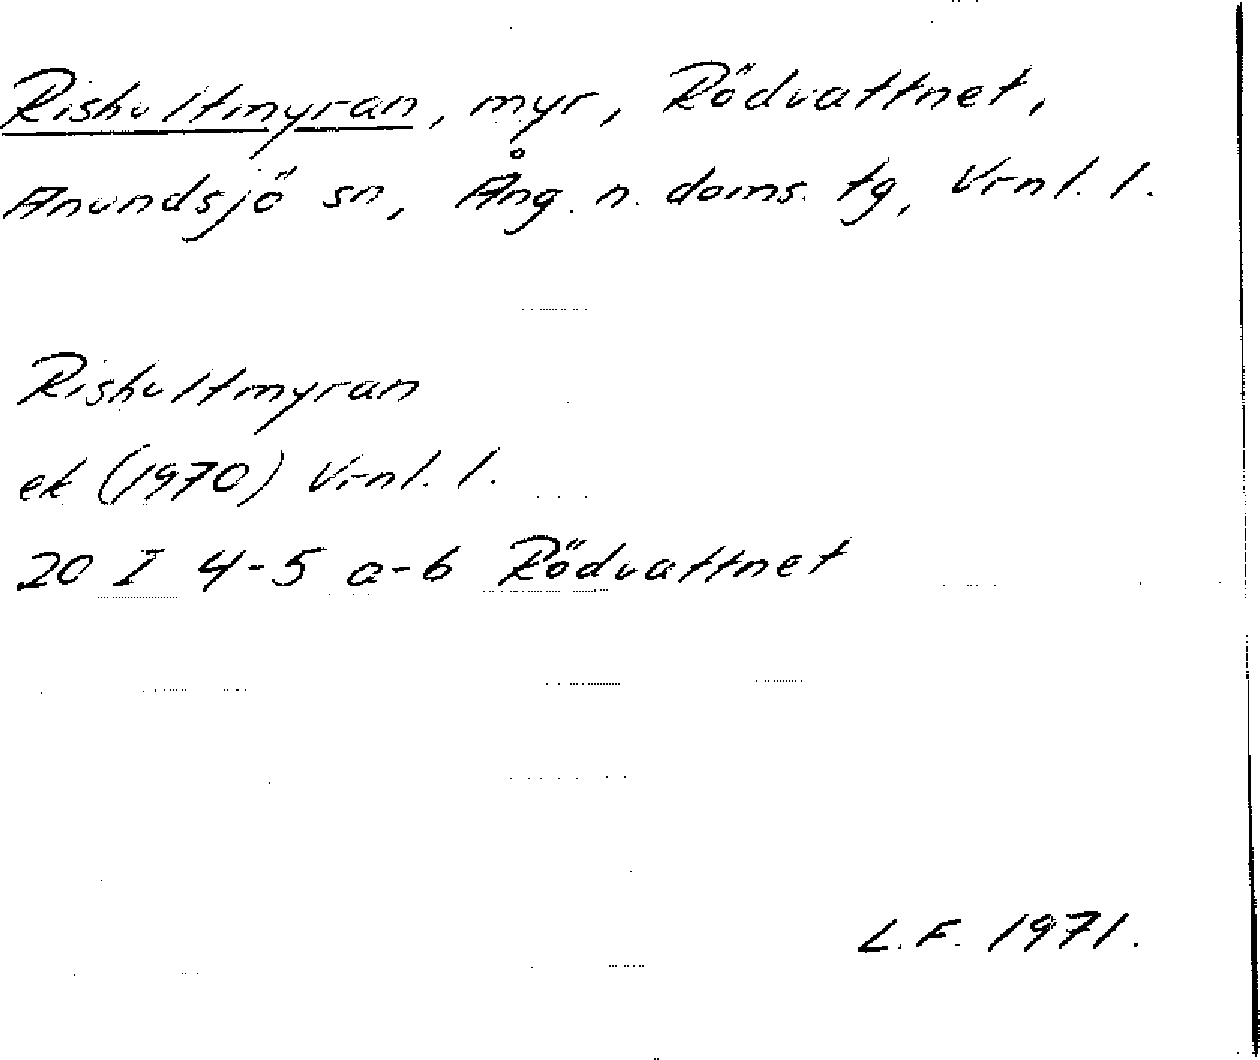 Rishultmyran, myr, Rödvattnet,
Anundsjö sn, Ång. n. doms. tg, Vrnl. l.
Rishultmyran
ek (1970) Vrnl. l.
20 I 4-5 a-b Rödvattnet
L. F. 1971.